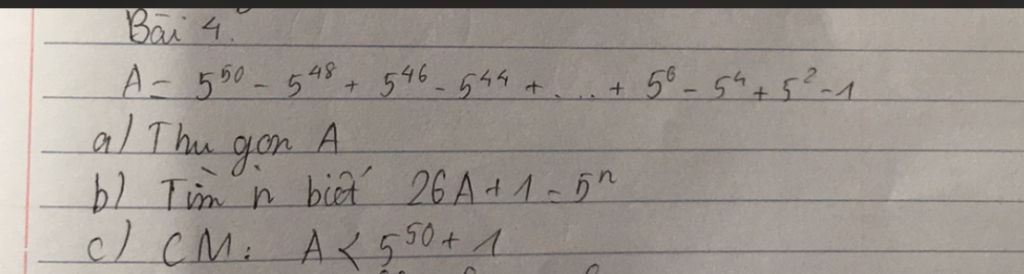 Bài 4.
A = 5⁵⁰ - 5⁴⁸ + 5⁴⁶ - 5⁴⁴ + ... + 5⁶ - 5⁴ + 5² - 1
a/ Thu gọn A
b) Tìm n biết 26A + 1 = 5ⁿ
c) CM: A < 5⁵⁰ + 1